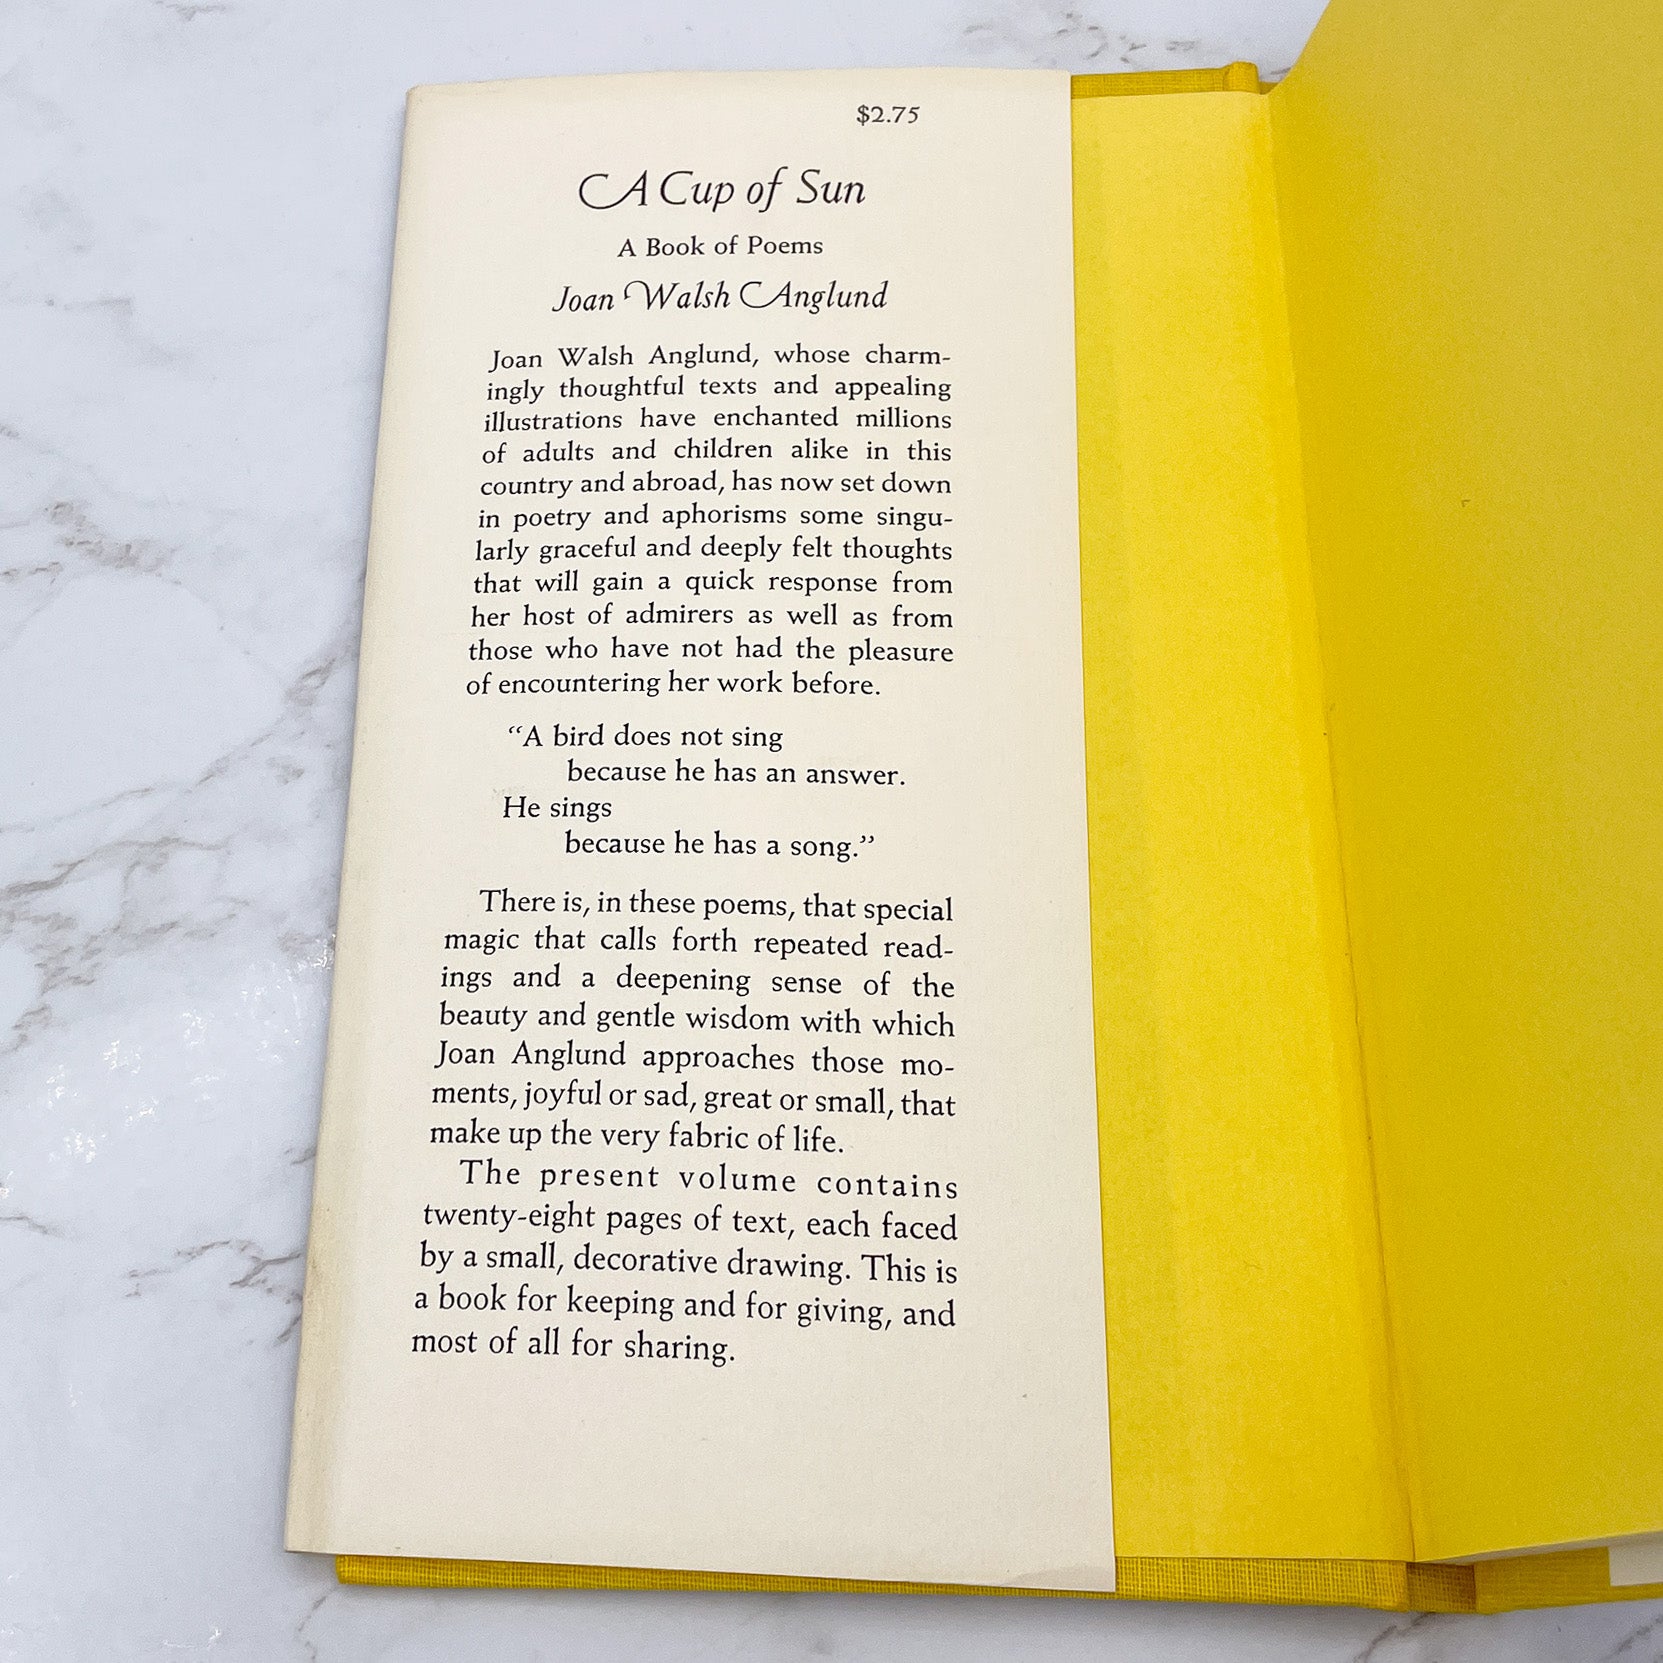 $2.75
A Cup of Sun
A Book of Poems
Joan Walsh Anglund
Joan Walsh Anglund, whose charm-
ingly thoughtful texts and appealing
illustrations have enchanted millions
of adults and children alike in this
country and abroad, has now set down
in poetry and aphorisms some singu-
larly graceful and deeply felt thoughts
that will gain a quick response from
her host of admirers as well as from
those who have not had the pleasure
of encountering her work before.
“A bird does not sing
because he has an answer.
He sings
because he has a song.”
There is, in these poems, that special
magic that calls forth repeated read-
ings and a deepening sense of the
beauty and gentle wisdom with which
Joan Anglund approaches those mo-
ments, joyful or sad, great or small, that
make up the very fabric of life.
The present volume contains
twenty-eight pages of text, each faced
by a small, decorative drawing. This is
a book for keeping and for giving, and
most of all for sharing.